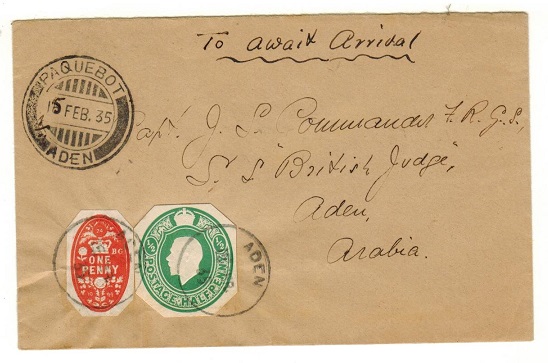 To await Arrival
PAQUEBOT
15 FEB. 35
ADEN
Capt. J. S. Commander F.R.G.S.,
S. S. "British Judge",
Aden,
Arabia.
BG
ONE
PENNY
POSTAGE HALFPENNY
ADEN
ADEN